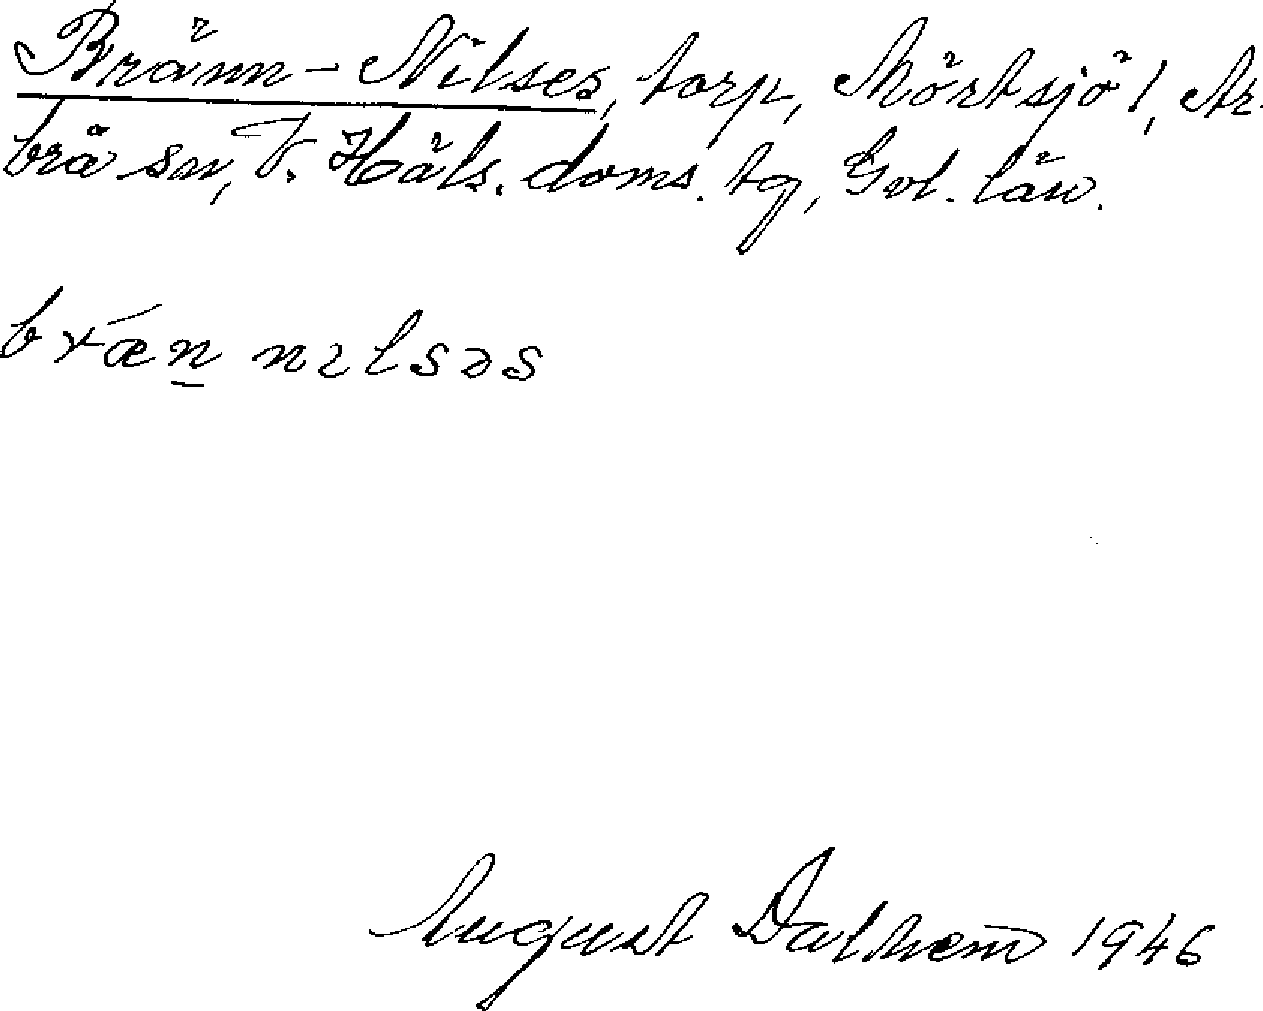 Bränn-Nilses, torp, Mörtsjö 1, Ar-
brå sn, V. Häls. doms. tg, Gvl. län.
bræ´n̲ nɪlsəs
August Dalhem 1946